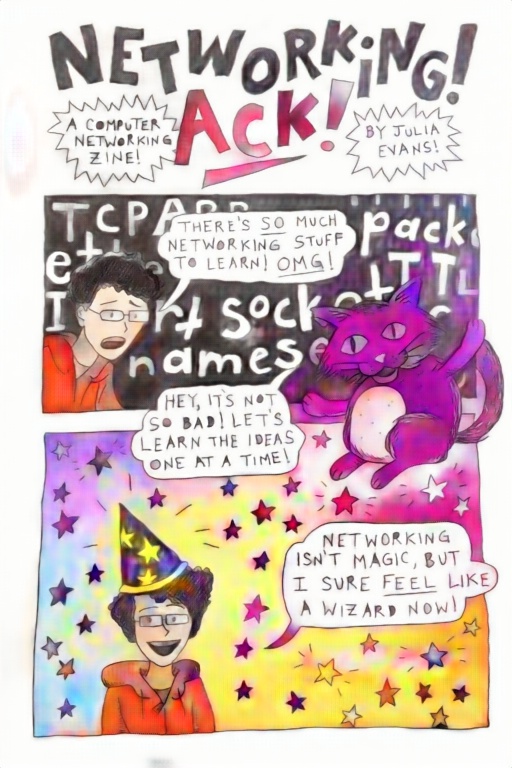 NETWORKING!
ACK!
A COMPUTER
NETWORKING
ZINE!
BY JULIA
EVANS!
THERE'S SO MUCH
NETWORKING STUFF
TO LEARN! OMG!
HEY, IT'S NOT
SO BAD! LET'S
LEARN THE IDEAS
ONE AT A TIME!
NETWORKING
ISN'T MAGIC, BUT
I SURE FEEL LIKE
A WIZARD NOW!